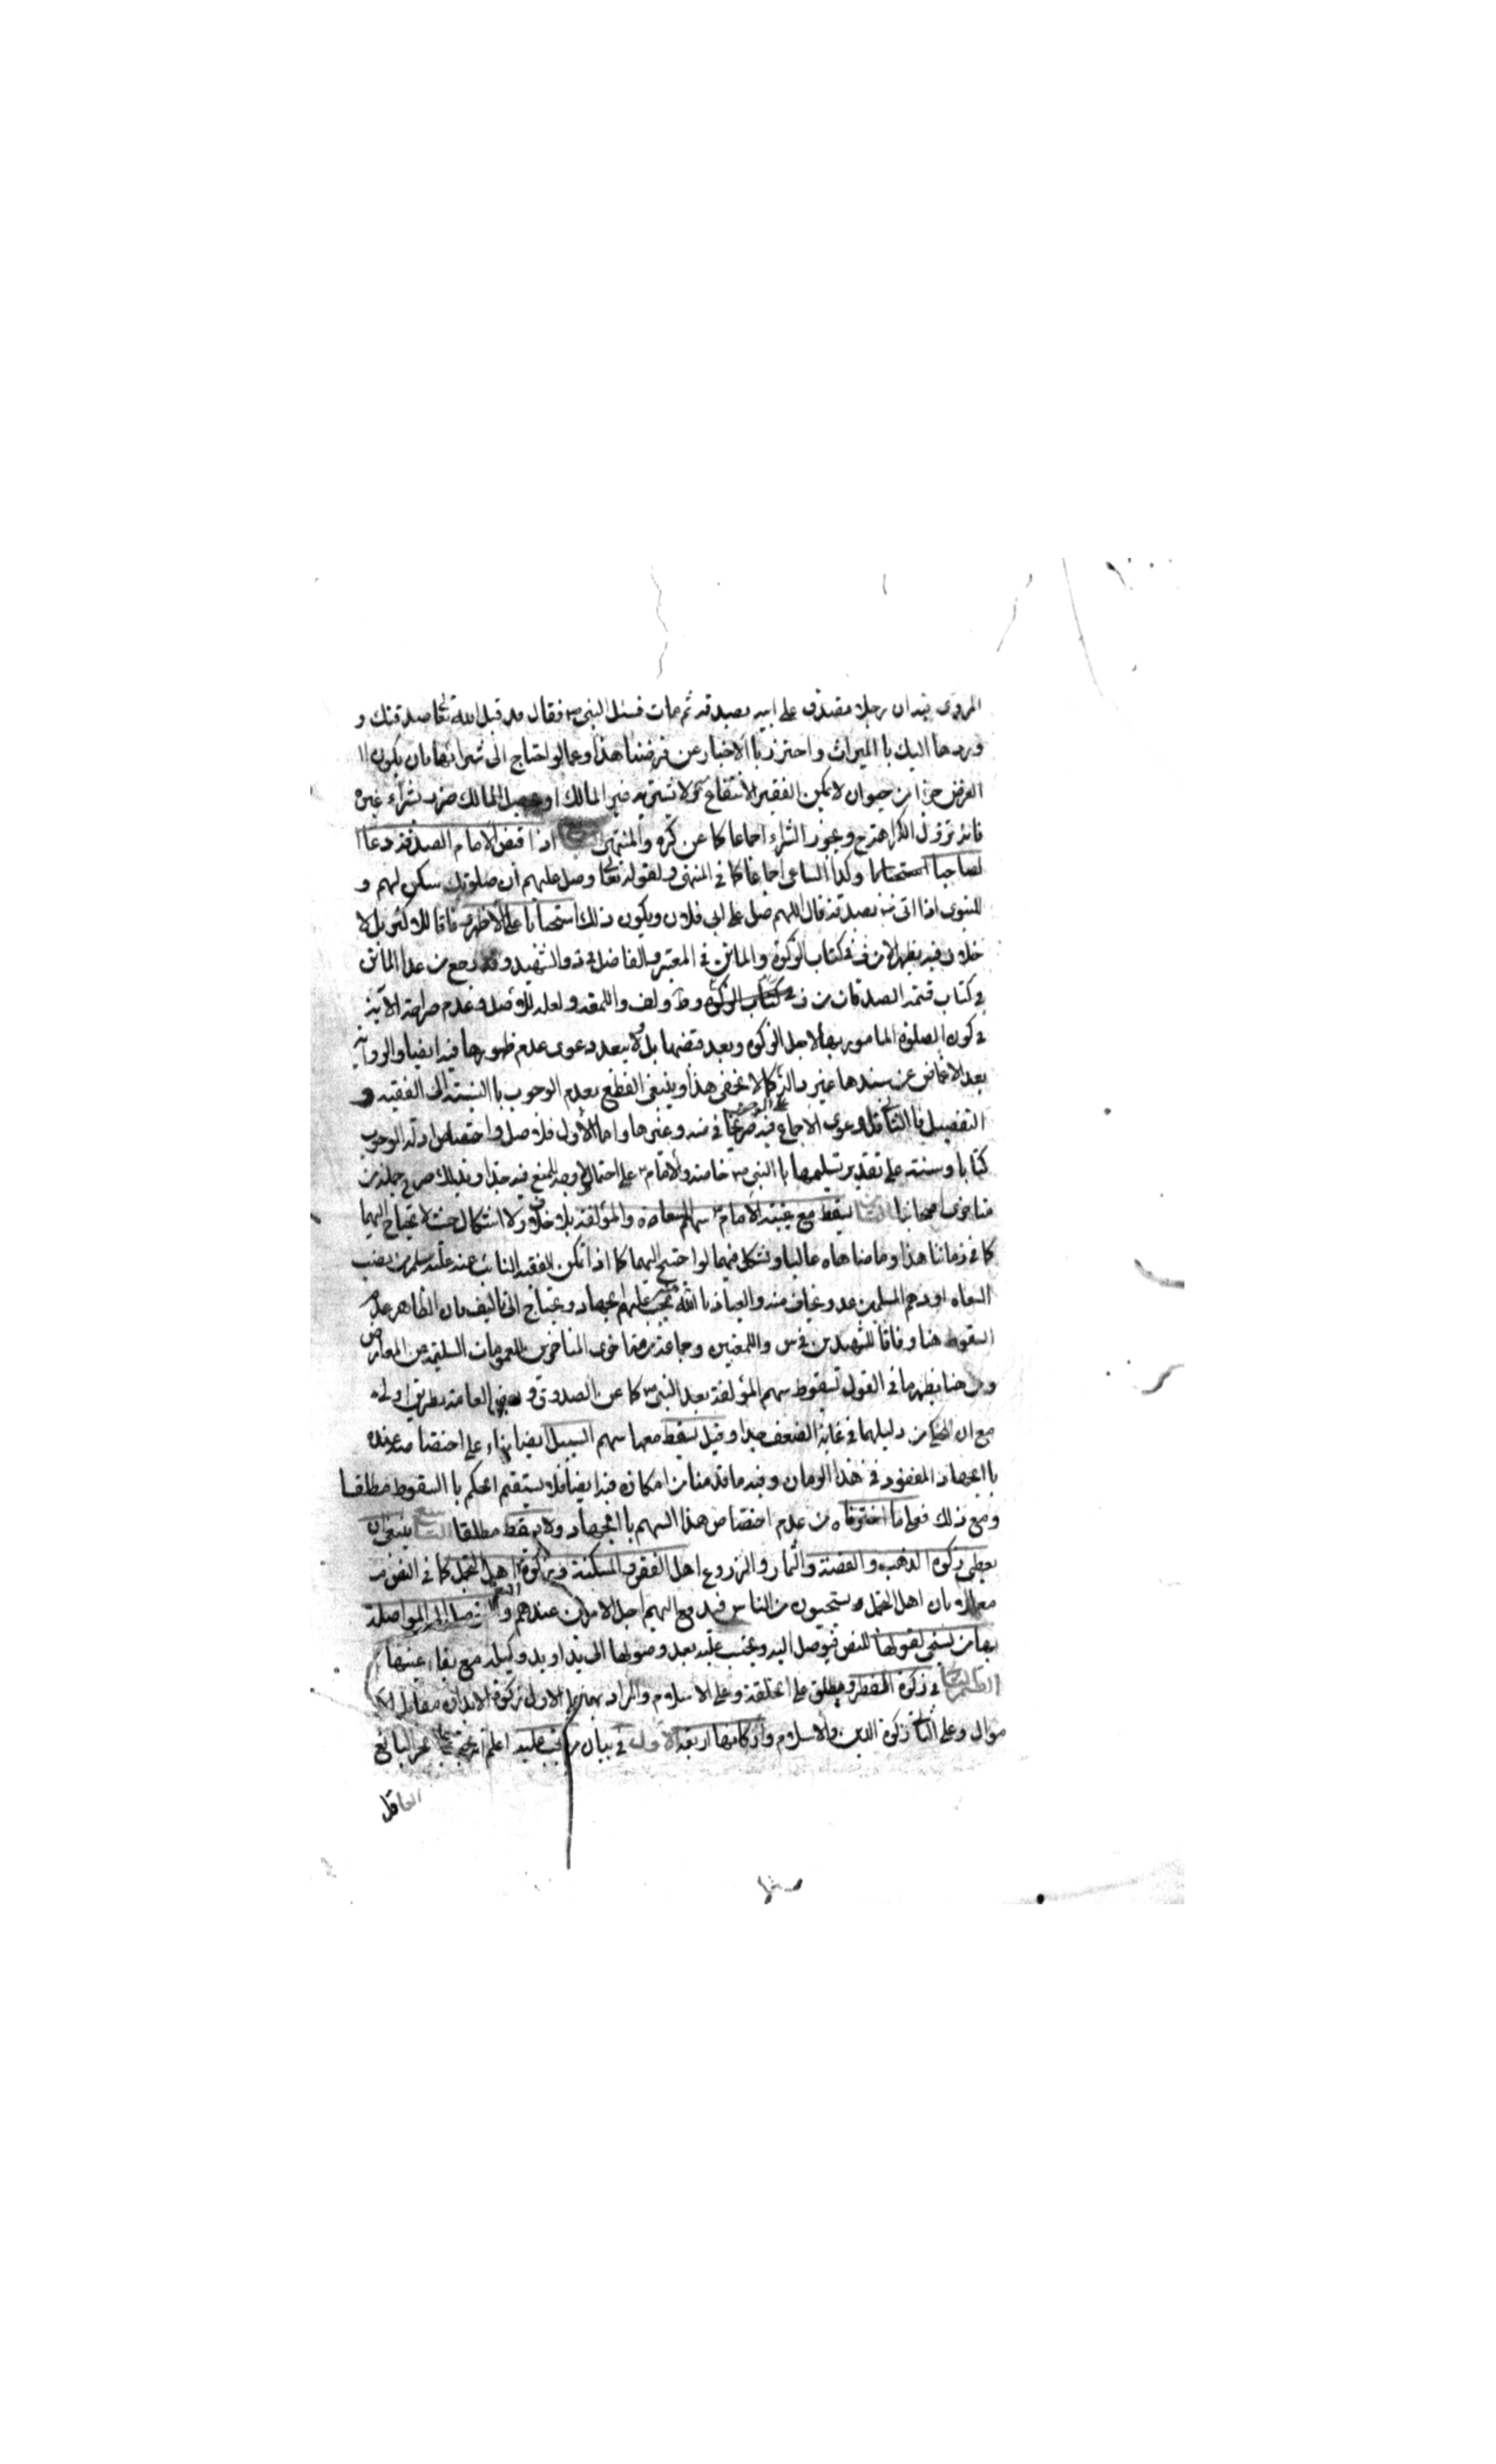 المروى فيه ان رجلا تصدق على ابيه بصدقه ثم مات فسئل النبى ص فقال قد قبل الله تعا صدقتك و
وردها اليك با الميراث واحترز با الاخبار عن فرضنا هذا وعما لو احتاج الى شرائها بان يكون ا
الفرض جزا من حيوان لا يمكن الفقير الانتفاع ولا يشتريه غير المالك او يحصل للمالك ضرر بشراء غيره
فانه تزول الكراهة ح ويجوز الشراء اجماعا كما عن كره والمنتهى اذا قبض الامام الصدقه دعا
لصاحبها استحبابا وكذا الساعى اجماعا كما فى المنتهى ولقوله تعا وصل عليهم ان صلوتك سكن لهم و
للنبوى اذا اتى بصدقه قال اللهم صل على ابى فلان ويكون ذلك استحبابا على الاظهر وفاقا للاكثر بل لا
خلاف فيه يظهر الا من ف فى كتاب الزكوة والماتن فى المعتبر والفاضل فى ه والشهيد وقد رجع من عدا الماتن
فى كتاب قسمة الصدقات من ف وط ولف واللمعه ولعله للاصل وعدم صراحة الآيه
فى كون الصلوة المامور بها لاجل الزكوه وبعد قبضها بل لا يبعد دعوى عدم ظهورها فيه ايضا والروايه
بعد الاغماض عن سندها غير كما لا يخفى هذا وينبغى القطع بعدم الوجوب با النسبه الى الفقيه و
التفصيل فا الثانى دعوى الاجماع فيه صريحا فى ه وغيرها واما الاول فلاصل واختصاص ادلة الوجوب
كتابا وسنة على تقدير تسليمها با النبى ص خاصه والامام على احتمال لا وجه للمنع فيه جدا وبذلك صرح جملة من
متاخرى اصحابنا الثامن يسقط مع غيبة الامام سهم السعاة والمؤلفة بلا خلاف ولا اشكال حيث لا يحتاج اليهما
كما فى زماننا هذا وما ضاهاه غالبا ويشكل فيما لو احتيج اليهما كما اذا تمكن الفقيه النائب عنه عليه سلم من نصب
السعاه او دهم المسلمين عدو يخاف منه والعياذ با الله يجب عليهم الجهاد ويحتاج الى التاليف فان الظاهر عدم
السقوط هنا وفاقا للشهيدين فى س واللمعتين وجماعة من متاخرى المتاخرين للعمومات السليمة عن المعارض
ومن هنا يظهر ما فى القول بسقوط سهم المؤلفة بعد النبى ص كما عن الصدوق وبعض العامة بطريق اولى
مع ان المحكى من دليلهما فى غاية الضعف جدا وقيل يسقط معهما سهم السبيل ايضا بناء على اختصاصه عنده
با الجهاد المفقود فى هذا الزمان وفيه ما قدمنا من امكانه فيه ايضا فلا يستقيم الحكم با السقوط مطلقا
ومع ذلك فعلى ما اخترناه من عدم اختصاص هذا السهم با الجهاد ولا يسقط مطلقا التاسع ينبغى ان
يعطى زكوة الذهب والفضة والثمار والزروع اهل الفقر والمسكنة وزكوة النعم اهل التجمل كما فى النصوص
معللا بان اهل التجمل يستحيون من الناس فيدفع اليهم اجل الامرين عندهم والتوصل الى المواصلة
بها من يستحى لقبولها للنص فتوصل اليه ويحتسب عليه بعد وصولها الى يده او يد وكيله مع بقاء عينها
القسم الثانى فى زكوة الفطر ويطلق على الخلقة وعلى الاسلام والمراد بها على الاول زكوة الابدان مقابل الا
موال وعلى الثانى زكوة الدين والاسلام واركانها اربعة الاول فى بيان من تجب عليه اعلم انه تجب على الحر البالغ
العاقل